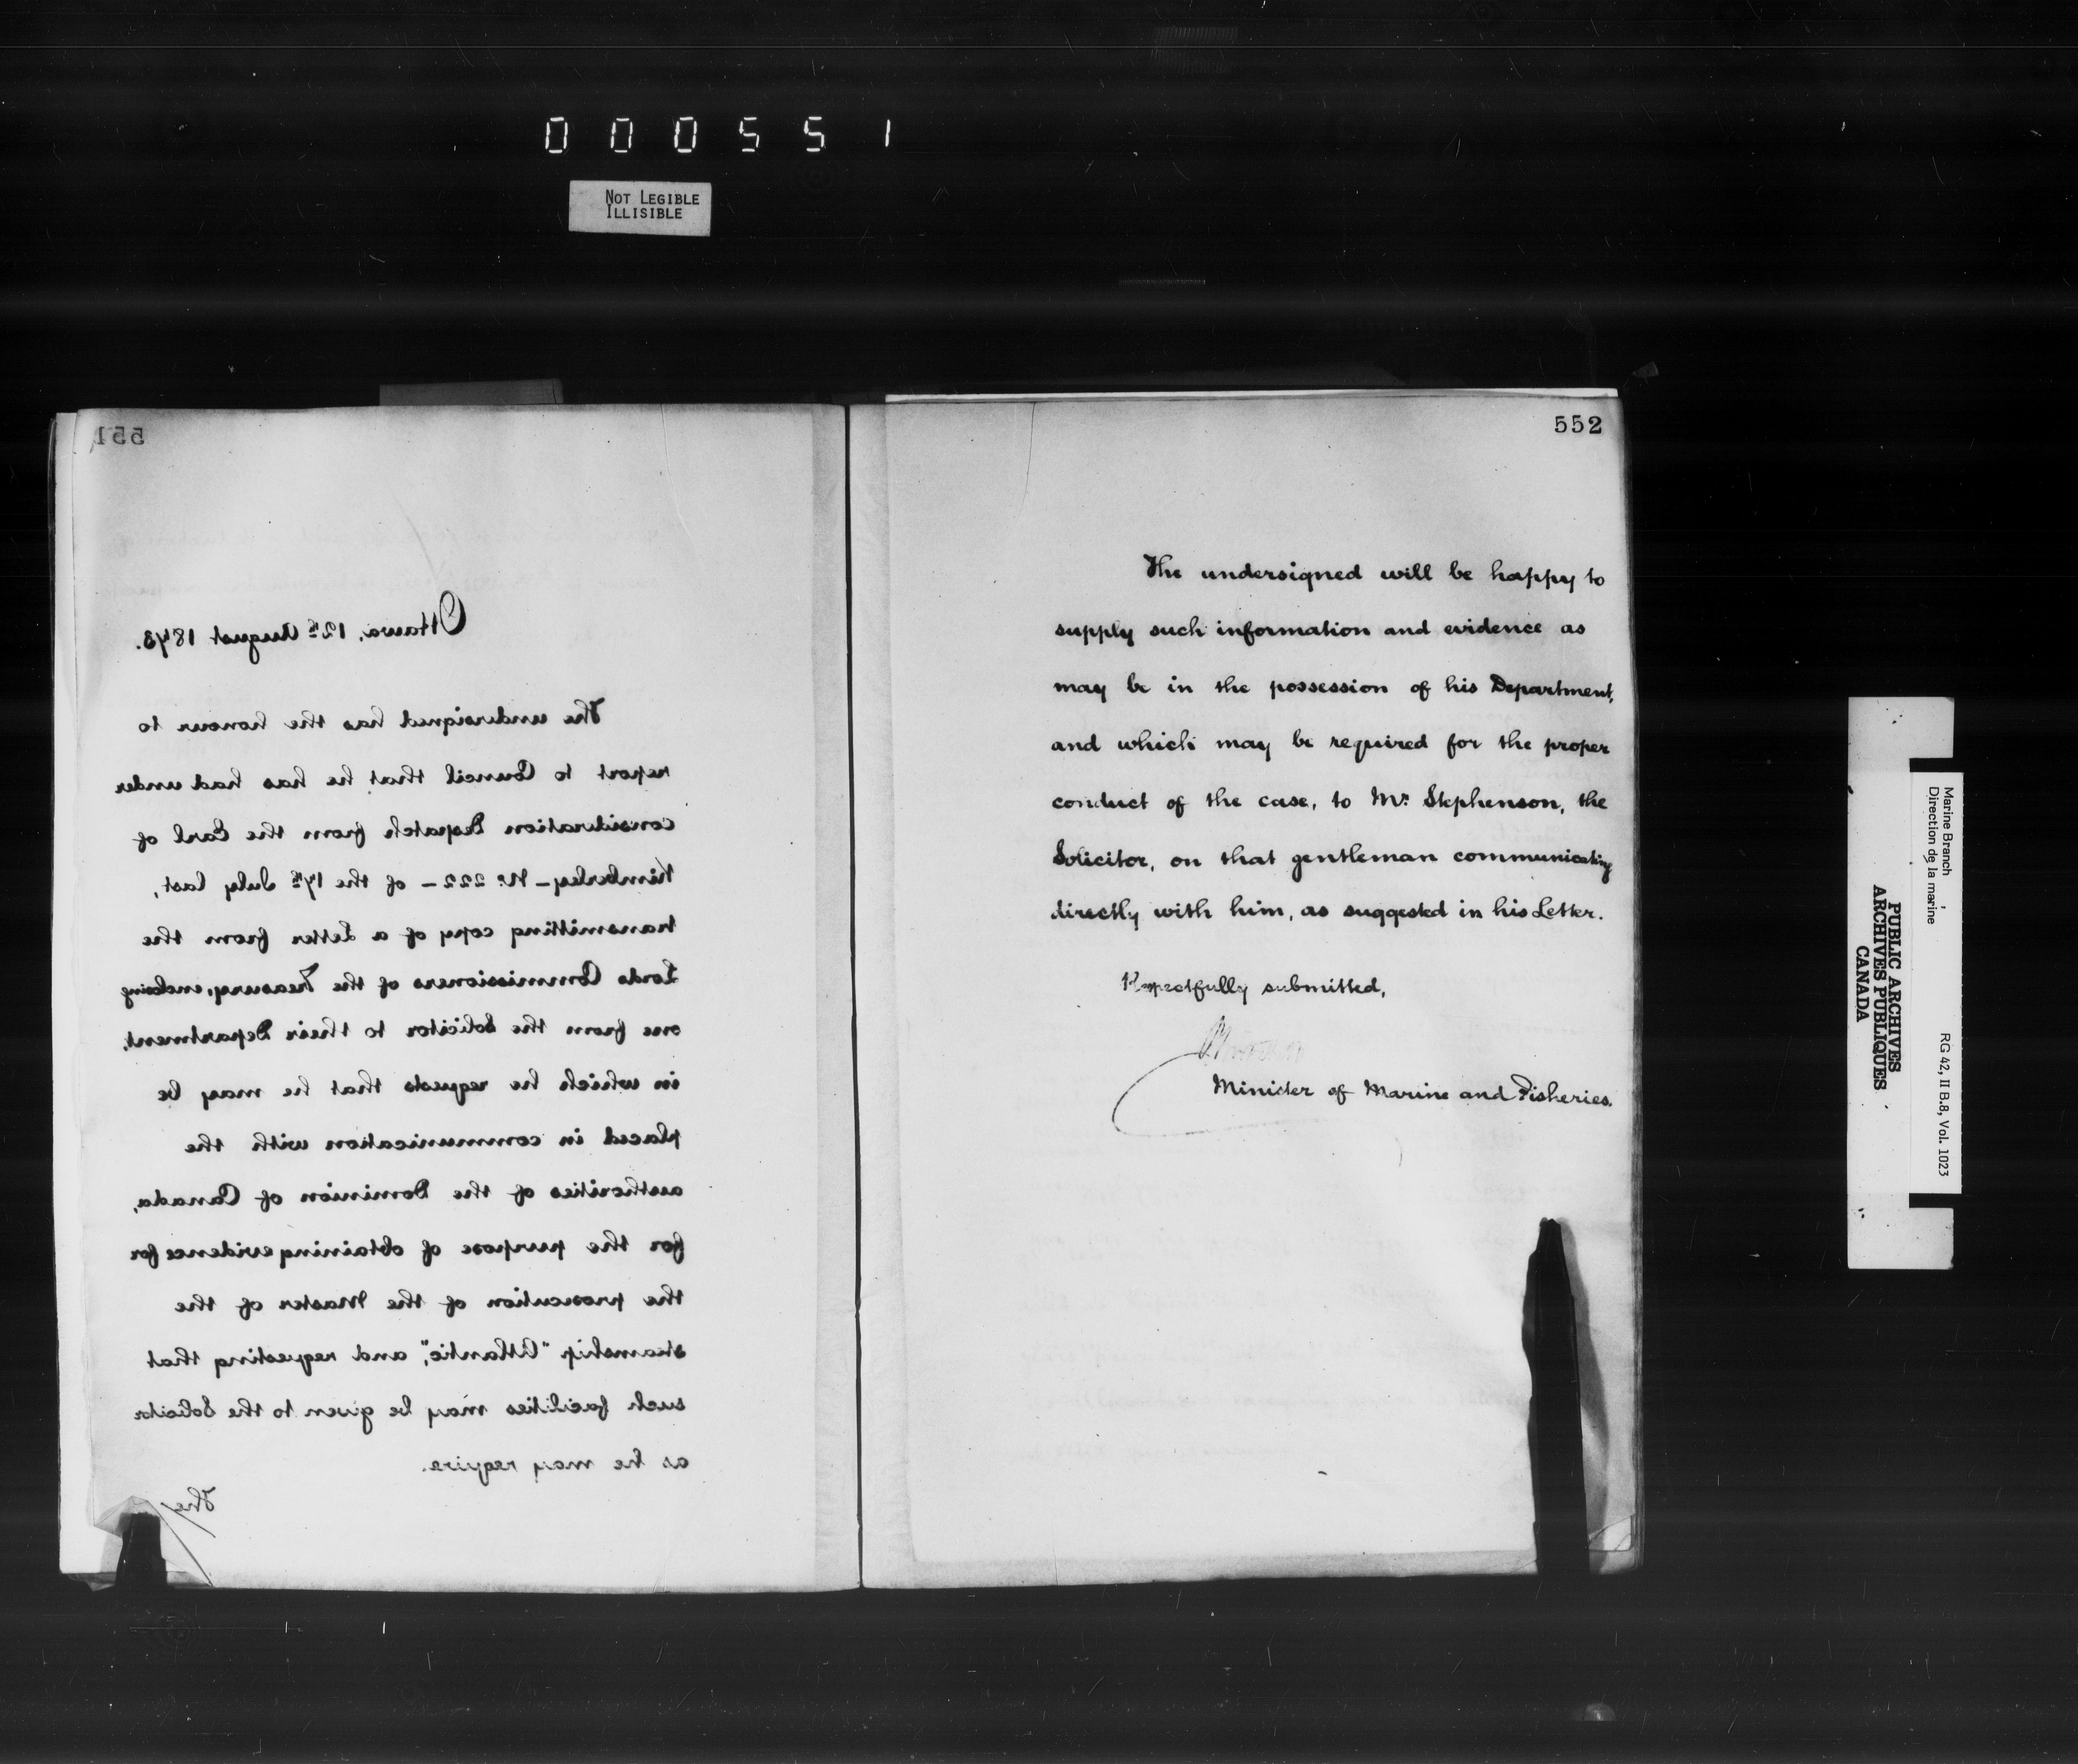 000551
NOT LEGIBLE
ILLISIBLE
551
Ottawa, 12th August 1873.
The undersigned has the honour to
report to Council that he has had under
consideration Despatch from the Earl of
Kimberley – No. 222 – of the 17th July last,
transmitting copy of a Letter from the
Lords Commissioners of the Treasury, enclosing
one from the Solicitor to their Department,
in which he requests that he may be
placed in communication with the
authorities of the Dominion of Canada,
for the purpose of obtaining evidence for
the prosecution of the Master of the
steamship "Atlantic", and requesting that
such facilities may be given to the Solicitor
as he may require.
The
552
The undersigned will be happy to
supply such information and evidence as
may be in the possession of his Department,
and which may be required for the proper
conduct of the case, to Mr. Stephenson, the
Solicitor, on that gentleman communicating
directly with him, as suggested in his Letter.
Respectfully submitted,
Minister of Marine and Fisheries.
Marine Branch
Direction de la marine
RG 42, II B.8, Vol. 1023
PUBLIC ARCHIVES
ARCHIVES PUBLIQUES
CANADA